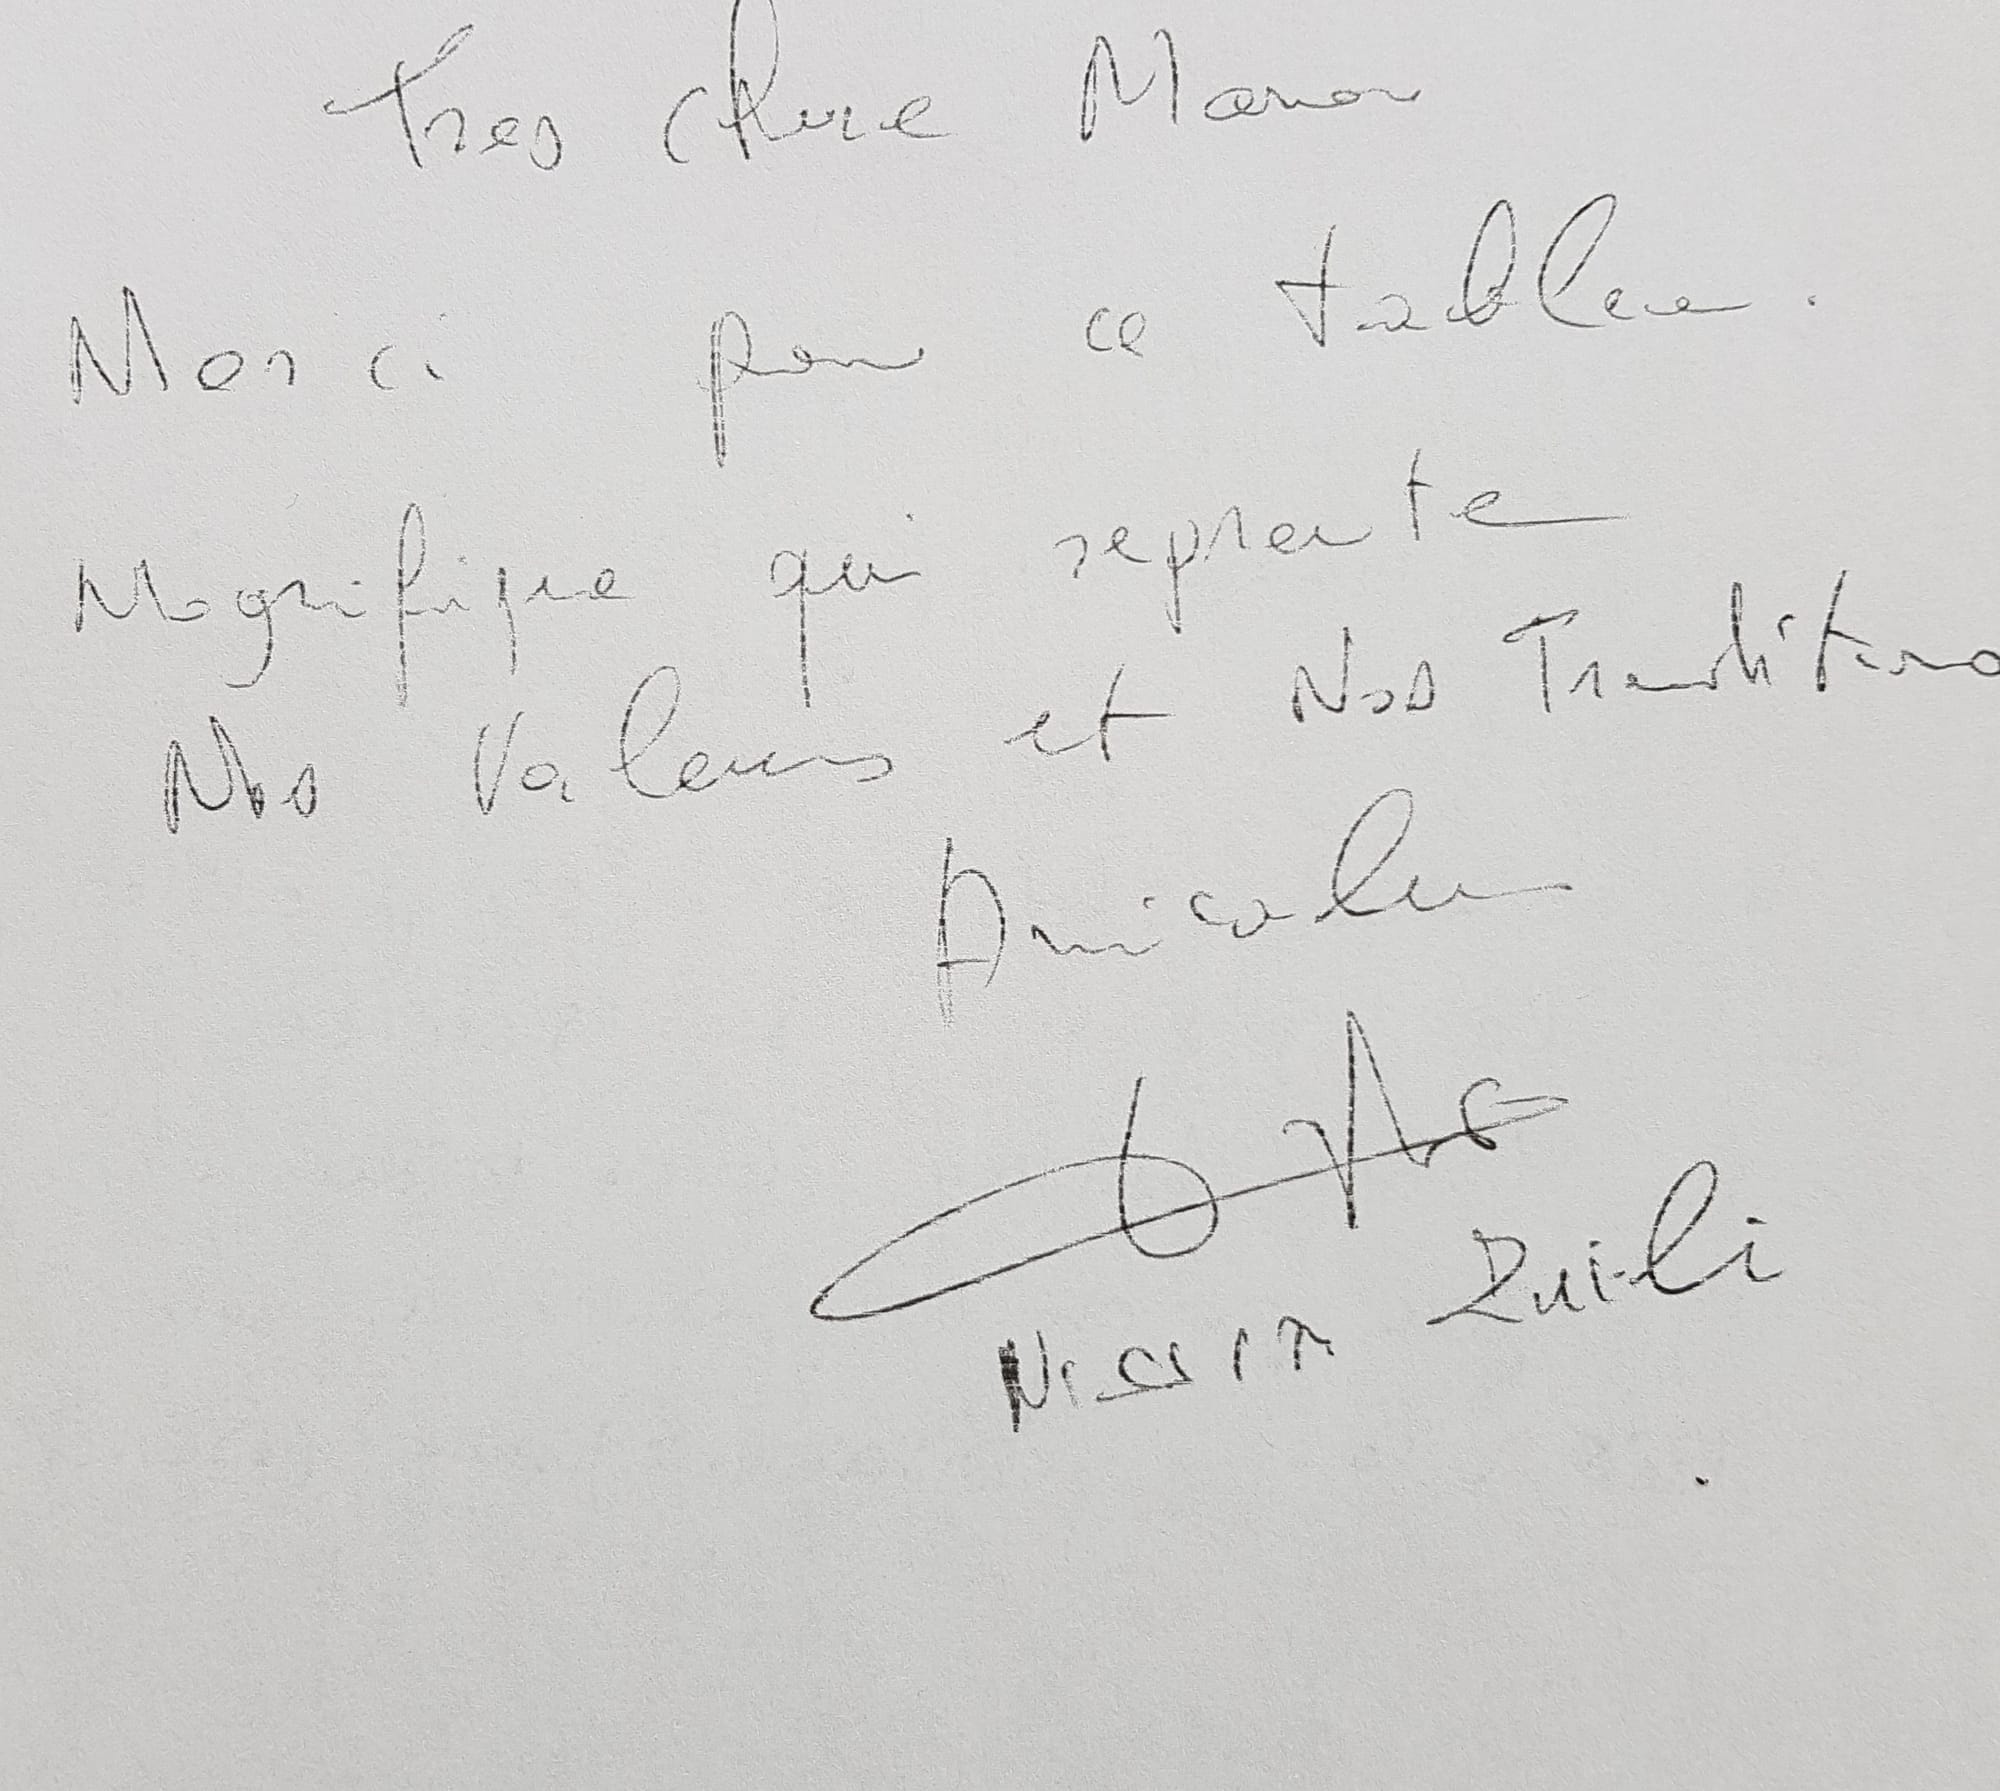 Tres chere Manon
Merci pour ce tableau.
Magnifique qui represente
Nos Valeurs et Nos Traditions
Amicalement
Nissim Zuili